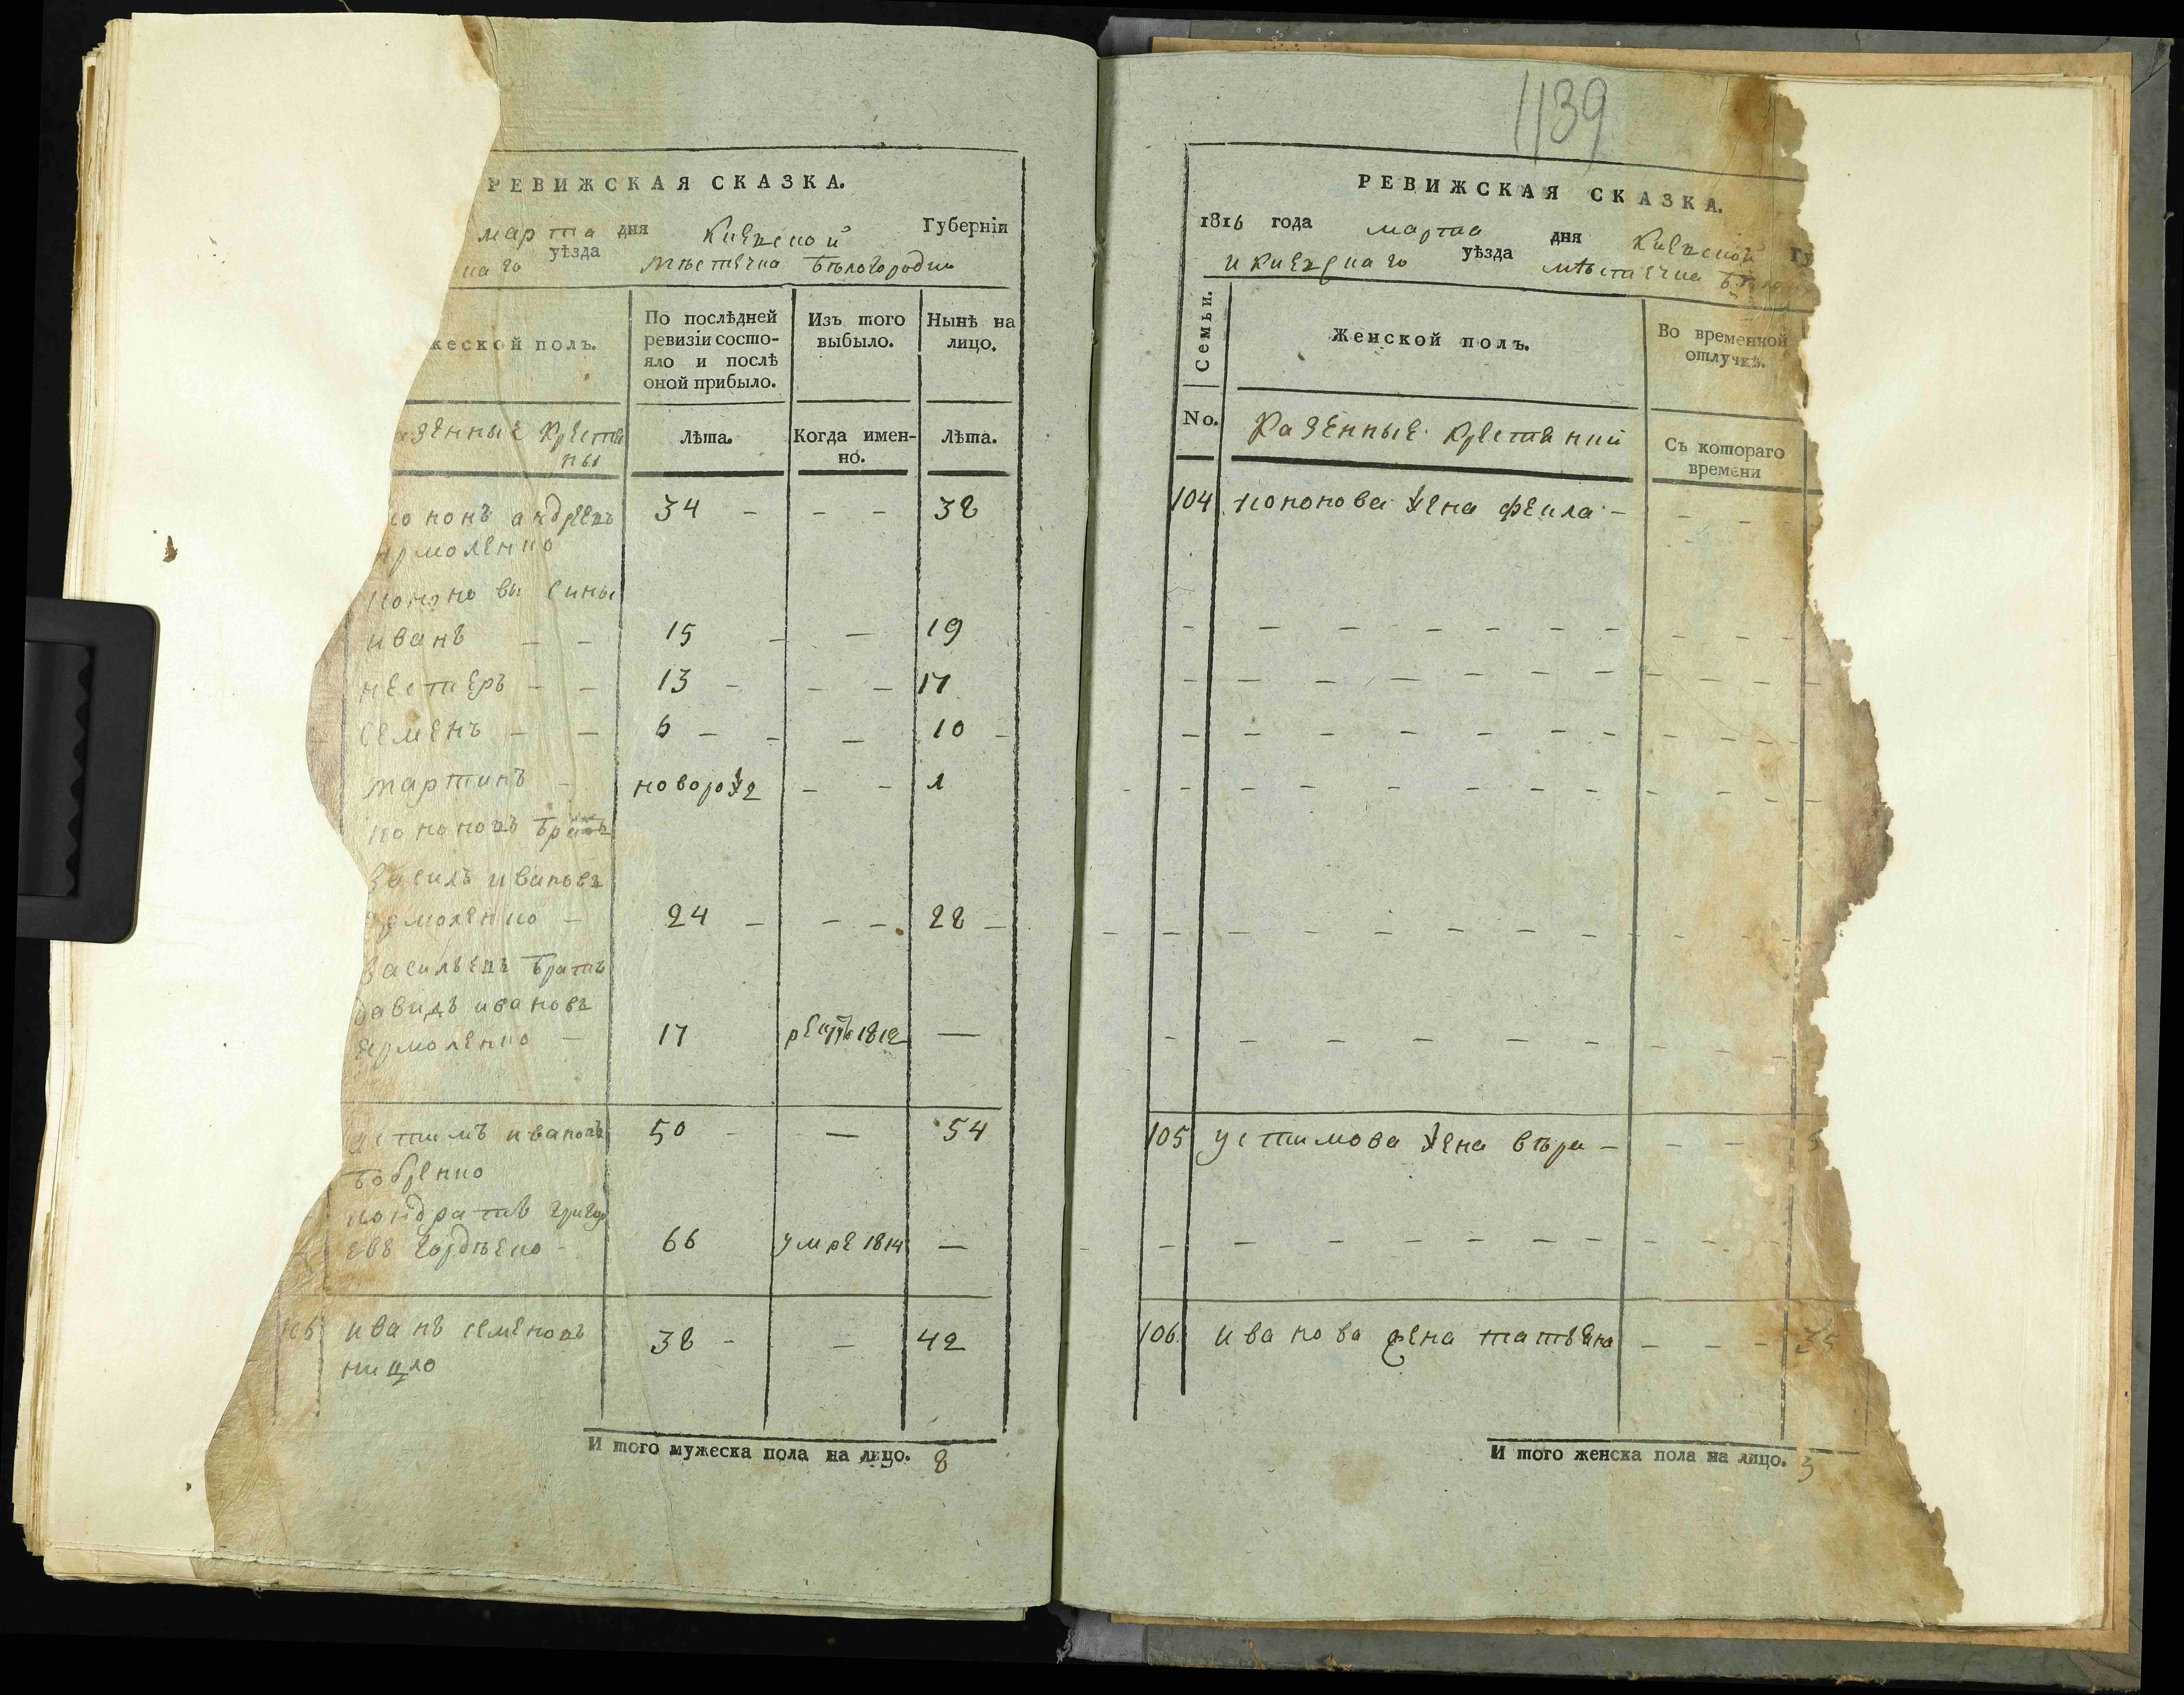 РЕВИЖСКАЯ СКАЗКА.
марта дня Киевской Губерніи
наго уѣзда мѣстечка Бѣлогородки
жеской полъ.
По послѣдней ревизіи состо-
яло и послѣ
оной прибыло.
Изъ того
выбыло.
Нынѣ на
лицо.
азенные крестя
ны
Лѣта.
Когда имен-
но.
Лѣта.
кононъ андреевъ 34 - - - 38
ярмоленко
кононовы сины
иванъ - - 15 - - 19
нестеръ - - 13 - - - 17
семенъ - - 6 - - - 10 -
мартинъ - новорож - - 1
кононовъ братъ
василъ ивановъ
рмоленко - 24 - - - 28 -
васильевъ братъ
давидъ ивановъ
ермоленко - 17 1812 —
устимъ ивановъ 50 - — 54
бобренко
кондратъ григор
евъ гордѣенко - 66 умре 1814 —
106 иванъ семеновъ 38 - - 42
И того мужеска пола на лицо. 8
1139
РЕВИЖСКАЯ СКАЗКА.
1816 года марта дня Киевской Гу
и киевскаго уѣзда мѣстечка
Семьи.
Женской полъ.
Во временной
отлучкѣ.
No.
Казенные крестянки
Съ котораго
времени
104 кононова жена фекла - - - -
105 устимова жена вѣра - - - -
106 иванова жена татьяна - - - 35
И того женска пола на лицо. 3